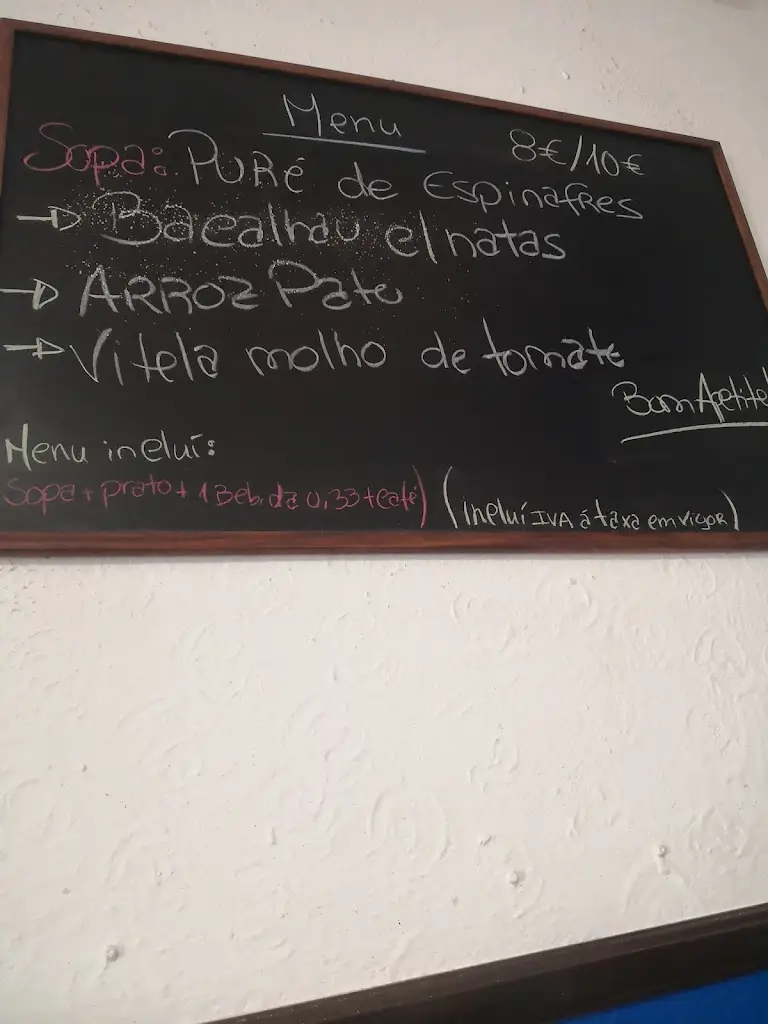 Menu 8€/10€
Sopa: PURé de Espinafres
Bacalhau c/natas
ARROZ Pato
Vitela molho de tomate
Bom Apetite!
Menu incluí:
Sopa + prato + 1 Bebida 0,33 + café) (incluí IVA á taxa em vigor)